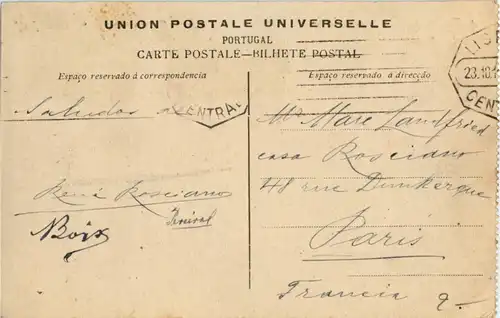 UNION POSTALE UNIVERSELLE
PORTUGAL
CARTE POSTALE—BILHETE POSTAL
Espaço reservado á correspondencia
Saludos
CENTRAL
René Rosciano
Boix
Espaço reservado á direcção
LIS
23.10.1
CENT
Mr Marc Landfried
casa Rosciano
48 rue Dunkerque
Paris
Francia